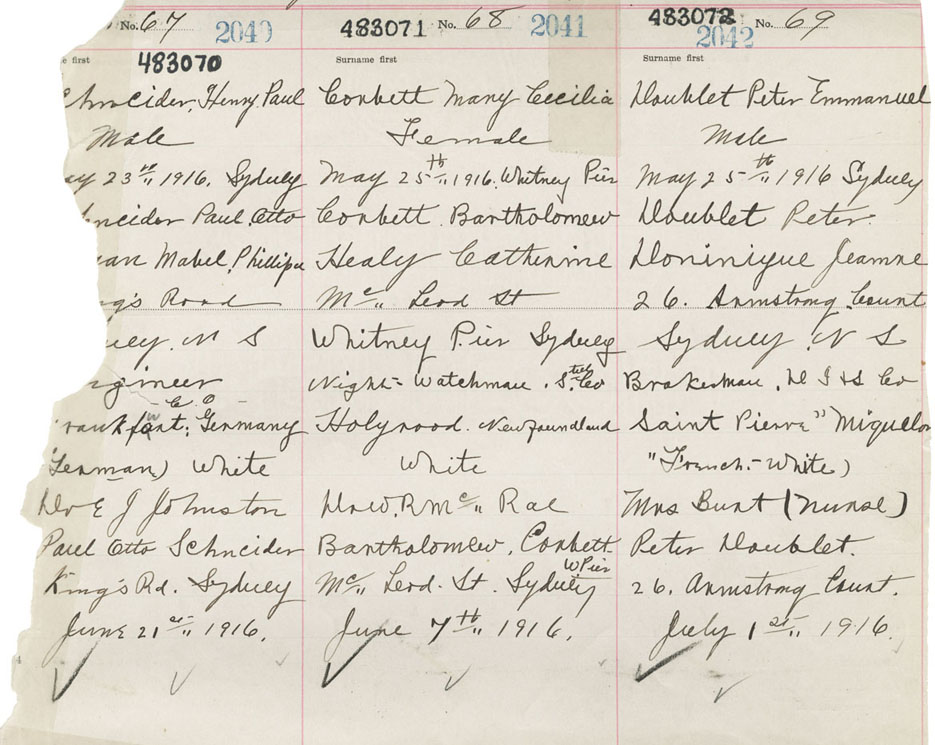 No. 67 2040
483070
Surname first
Schneider, Henry Paul
Male
May 23rd 1916. Sydney
Schneider Paul Otto
Mabel Phillipa
King's Road
Sydney. N S
Engineer
C. E
Frankfort: Germany
German) White
Dr E J Johnston
Paul Otto Schneider
King's Rd. Sydney
June 21st 1916.
483071 No. 68 2041
Surname first
Corbett Mary Cecilia
Female
May 25th 1916. Whitney Pier
Corbett. Bartholomew
Healy Catherine
Mc Leod St
Whitney Pier Sydney
Night-Watchman. Steel Co
Holyrood. Newfoundland
White
Dr W. R Mc Rae
Bartholomew. Corbett
W Pier
Mc Leod. St. Sydney
June 7th 1916.
483072 No. 69
2042
Surname first
Doublet Peter Emmanuel
Male
May 25th 1916 Sydney
Doublet Peter.
Dominique Jeanne
26. Armstrong Court
Sydney. N S
Brakesman, D I & S Co
Saint Pierre" Miquelon
"French-White)
Mrs Burt (Nurse)
Peter Doublet.
26. Armstrong Court.
July 1st 1916.